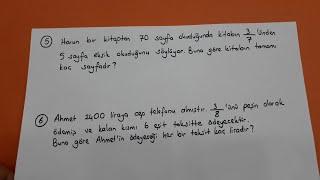 5 Harun bir kitaptan 70 sayfa okuduğunda kitabın 3/7 'ünden
5 sayfa eksik okuduğunu söylüyor. Buna göre kitabın tamamı
kaç sayfadır?
6 Ahmet 2400 liraya cep telefonu almıştır. 3/8 'ünü peşin olarak
ödemiş ve kalan kısmı 6 eşit taksitte ödeyecektir.
Buna göre Ahmet'in ödeyeceği her bir taksit kaç liradır?